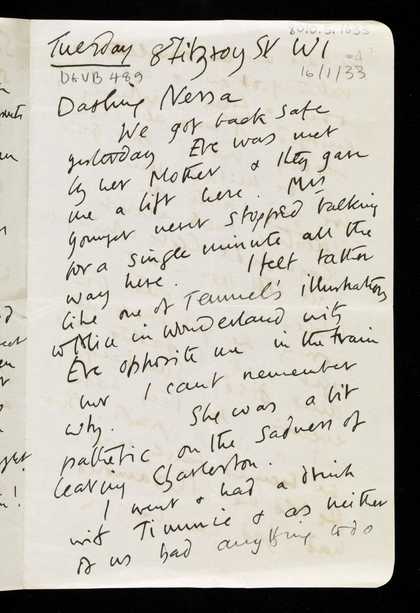 8010.5.1033
Tuesday 8 Fitzroy St W1
DGVB 489
16/1/33
Darling Nessa
We got back safe
yesterday Eve was met
by her Mother & they gave
me a lift here. Mrs
Younger never stopped talking
for a single minute all the
way here. I felt rather
like one of Tenniel's illustrations
to Alice in Wonderland with
Eve opposite me in the train
but I cant remember
why. She was a bit
pathetic on the sadness of
leaving Charleston.
I went & had a drink
with Timmie & as neither
of us had anything to do